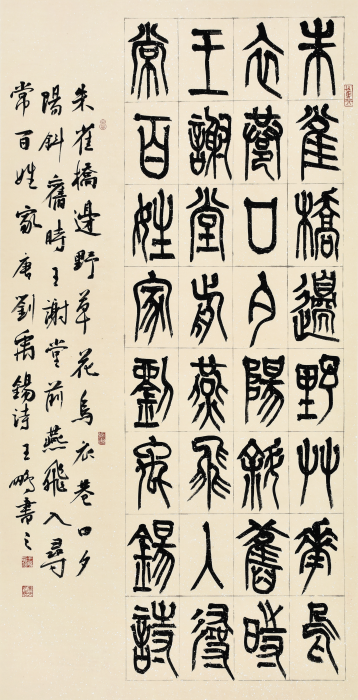 朱雀橋邊野艸華烏
衣巷口夕陽斜舊時
王謝堂前燕飛入尋
常百姓家劉禹錫詩
朱雀橋邊野草花烏衣巷口夕
陽斜舊時王謝堂前燕飛入尋
常百姓家唐劉禹錫詩王鵬書之